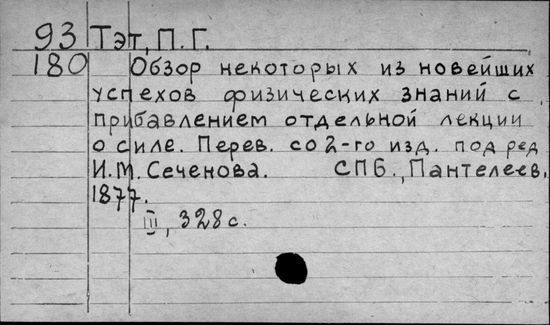 93 Тэт, П. Г.
180 Обзор некоторых из новейших
успехов физических знаний с
прибавлением отдельной лекции
о силе. Перев. со 2-го изд. под ред
И. М. Сеченова. СПб., Пантелеев,
1877.
III, 328 с.